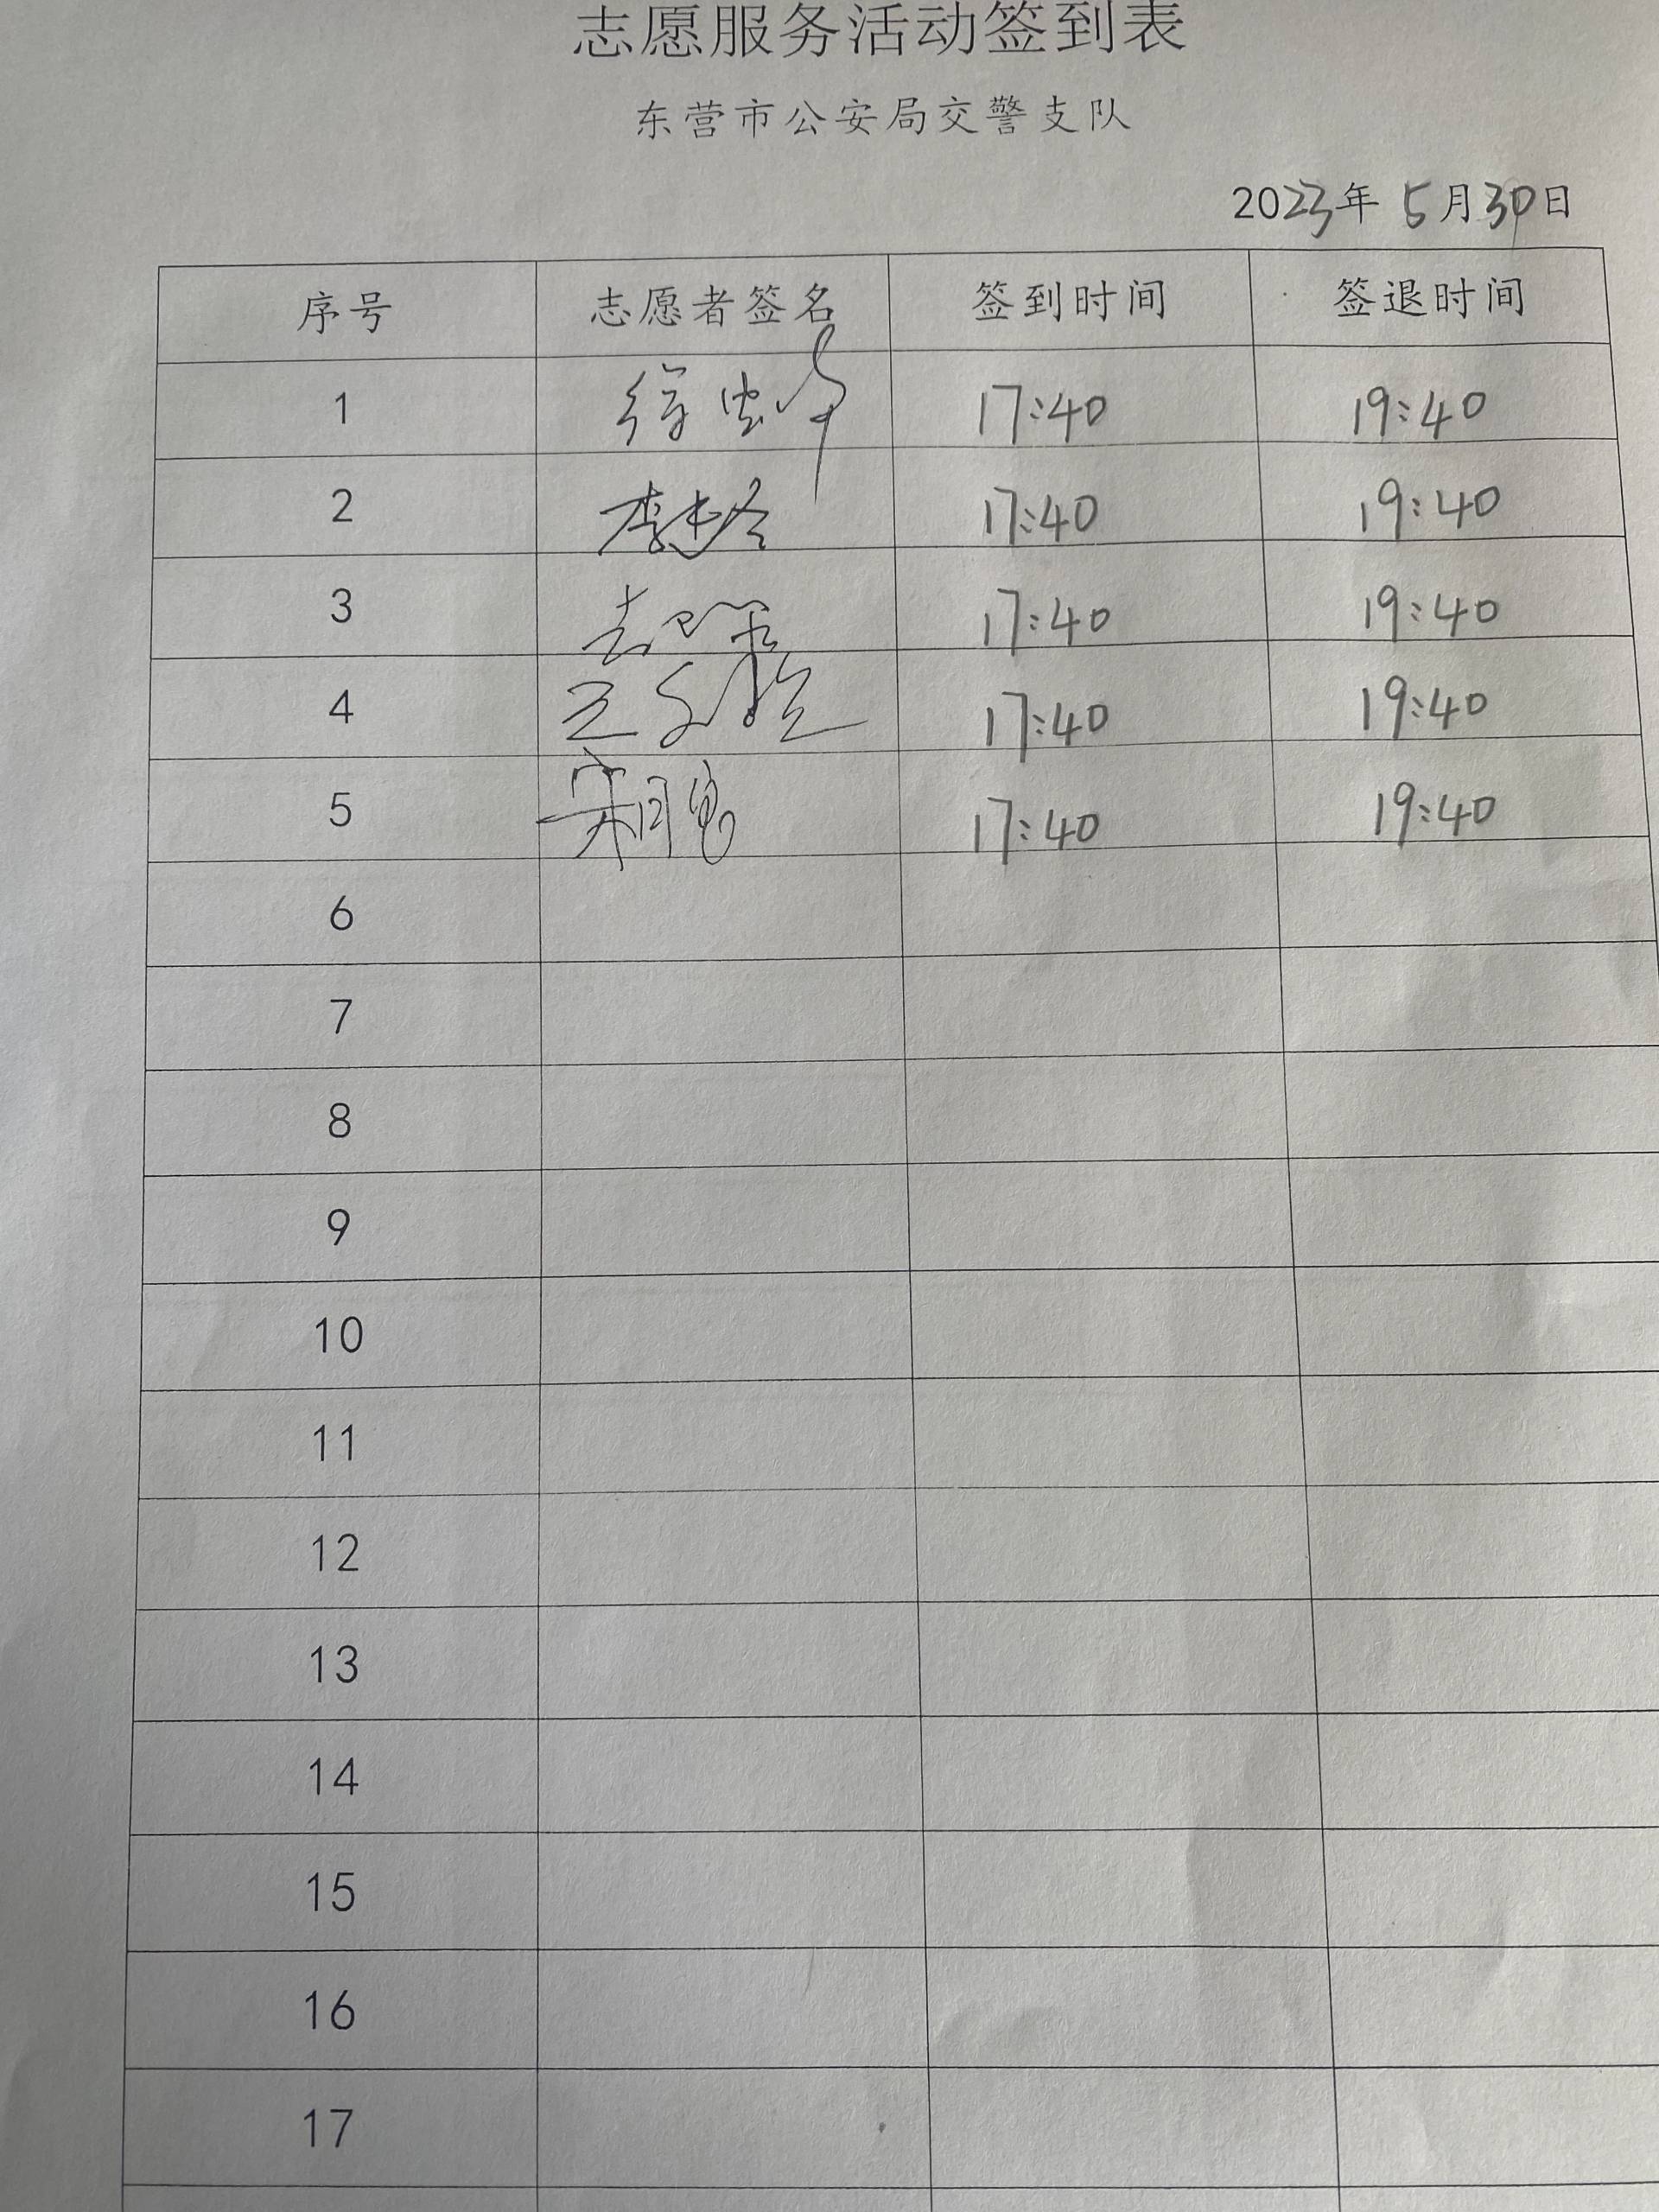 志愿服务活动签到表
东营市公安局交警支队
2023年 5月30日
序号 志愿者签名 签到时间 签退时间
1 徐 17:40 19:40
2 李 17:40 19:40
3 17:40 19:40
4 王 17:40 19:40
5 宋 17:40 19:40
6
7
8
9
10
11
12
13
14
15
16
17